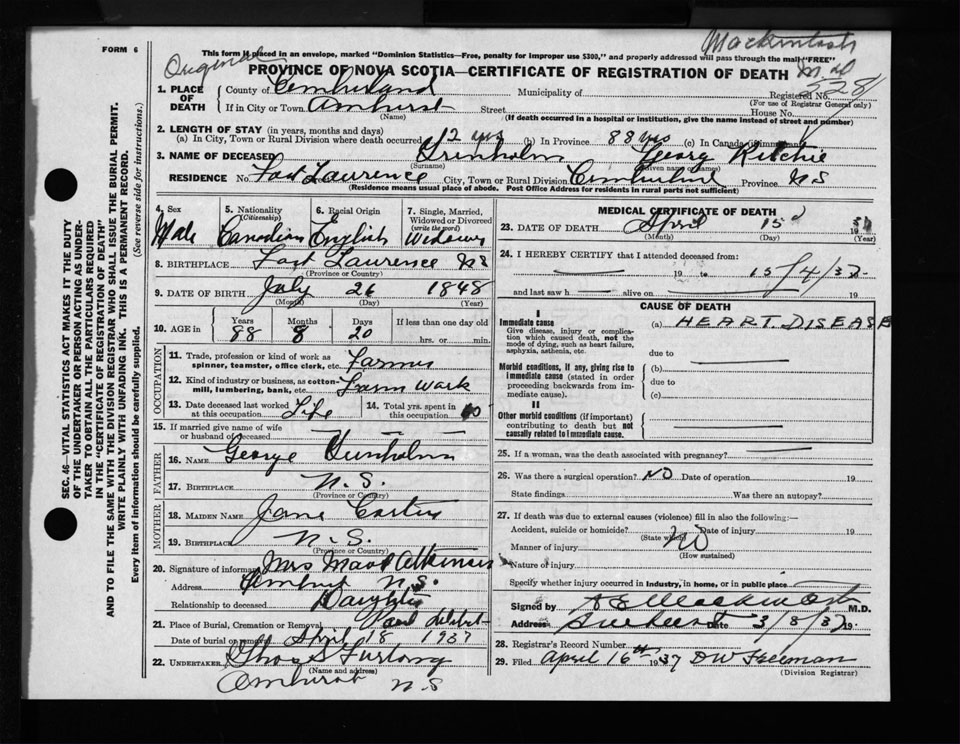 FORM 6
This form if placed in an envelope, marked "Dominion Statistics—Free, penalty for improper use $300," and properly addressed will pass through the mail "FREE"
Mackintosh
Original
PROVINCE OF NOVA SCOTIA—CERTIFICATE OF REGISTRATION OF DEATH
M.D.
1. PLACE OF DEATH
County of Cumberland Municipality of Registered No. 528
(For use of Registrar General only)
If in City or Town Amherst Street House No.
(Name) (If death occurred in a hospital or institution, give the name instead of street and number)
2. LENGTH OF STAY (in years, months and days)
(a) In City, Town or Rural Division where death occurred 12 yrs (b) In Province 88 yrs (c) In Canada (if immigrant)
3. NAME OF DECEASED Trenholm George Ritchie
(Surname) (Given name or names)
RESIDENCE No. Fort Lawrence City, Town or Rural Division Cumberland Province NS
(Residence means usual place of abode. Post Office Address for residents in rural parts not sufficient)
4. Sex Male
5. Nationality (Citizenship) Canadian
6. Racial Origin English
7. Single, Married, Widowed or Divorced (write the word) Widower
8. BIRTHPLACE Fort Lawrence NS
(Province or Country)
9. DATE OF BIRTH July 26 1848
(Month) (Day) (Year)
10. AGE in Years Months Days If less than one day old
88 8 20 hrs. or min.
OCCUPATION
11. Trade, profession or kind of work as spinner, teamster, office clerk, etc. Farmer
12. Kind of industry or business, as cotton-mill, lumbering, bank, etc. Farm Work
13. Date deceased last worked at this occupation Life
14. Total yrs. spent in this occupation
15. If married give name of wife or husband of deceased
FATHER
16. NAME George Trenholm
17. BIRTHPLACE N.S.
(Province or Country)
MOTHER
18. MAIDEN NAME Jane
19. BIRTHPLACE N.S.
(Province or Country)
20. Signature of informant Mrs Maud Atkinson
Address Amherst N.S.
Relationship to deceased Daughter
21. Place of Burial, Cremation or Removal
Date of burial or removal April 18 1937
22. UNDERTAKER Thos S Furlong
(Name and address)
Amherst N.S
MEDICAL CERTIFICATE OF DEATH
23. DATE OF DEATH April 15 19
(Month) (Day) (Year)
24. I HEREBY CERTIFY that I attended deceased from:
19 to 15/4/37
and last saw h alive on 19
CAUSE OF DEATH
I
Immediate cause (a) HEART DISEASE
Give disease, injury or complication which caused death, not the mode of dying, such as heart failure, asphyxia, asthenia, etc.
due to
Morbid conditions, if any, giving rise to immediate cause (stated in order proceeding backwards from immediate cause).
(b)
due to
(c)
II
Other morbid conditions (if important) contributing to death but not causally related to immediate cause.
25. If a woman, was the death associated with pregnancy?
26. Was there a surgical operation? NO Date of operation 19
State findings Was there an autopsy?
27. If death was due to external causes (violence) fill in also the following:—
Accident, suicide or homicide? Date of injury 19
(State which) NO
Manner of injury
(How sustained)
Nature of injury
Specify whether injury occurred in industry, in home, or in public place
Signed by A E Mackintosh M.D.
Address Amherst Date 3/8/37 19
28. Registrar's Record Number
29. Filed April 16th 1937 D W Freeman
(Division Registrar)
SEC. 46—VITAL STATISTICS ACT MAKES IT THE DUTY
OF THE UNDERTAKER OR PERSON ACTING AS UNDER-
TAKER TO OBTAIN ALL THE PARTICULARS REQUIRED
IN THE "CERTIFICATE OF REGISTRATION OF DEATH"
AND TO FILE THE SAME WITH THE DIVISION REGISTRAR WHO SHALL ISSUE THE BURIAL PERMIT.
WRITE PLAINLY WITH UNFADING INK. THIS IS A PERMANENT RECORD.
Every item of information should be carefully supplied. (See reverse side for instructions.)